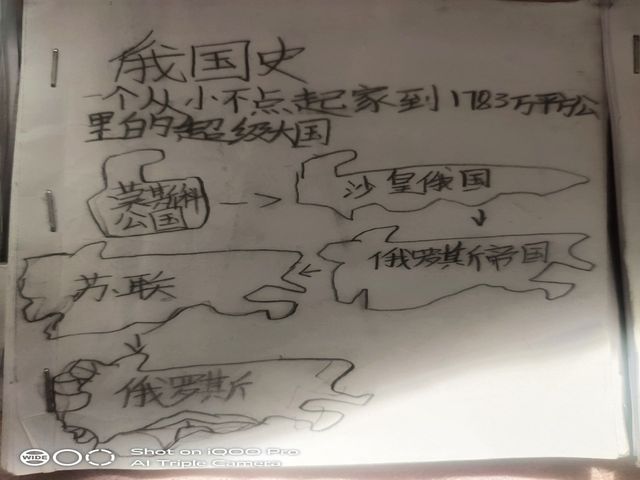 俄国史
一个从小不点起家到1783万平方公
里的超级大国
莫斯科
公国
沙皇俄国
俄罗斯帝国
苏联
俄罗斯
WIDE
Shot on iQOO Pro
AI Triple Camera